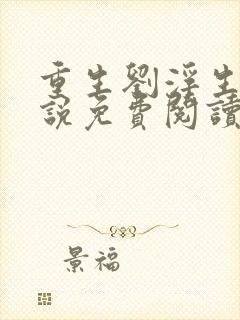 重生劉淫生
說免費閱讀
景福